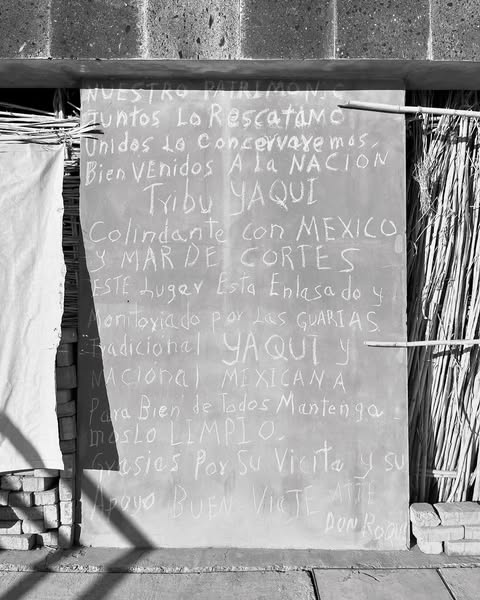 NUESTRO PATRIMONIO
Juntos Lo Rescatamo
Unidos Lo Conservaremos,
BienVENidos A La NACIÓN
Tribu YAQUI
Colindante con MEXICO
Y MAR DE CORTES
ESTE Lugar Esta Enlasado y
Monitoriado por Las GUARIAS
Tradicional YAQUI y
NACIonal MEXICANA
Para Bien de Todos Mantenga
mosLo LIMPIO.
Grasias Por Su Vicita y su
Apoyo BUEN ViaJE ATTE
DON Roque